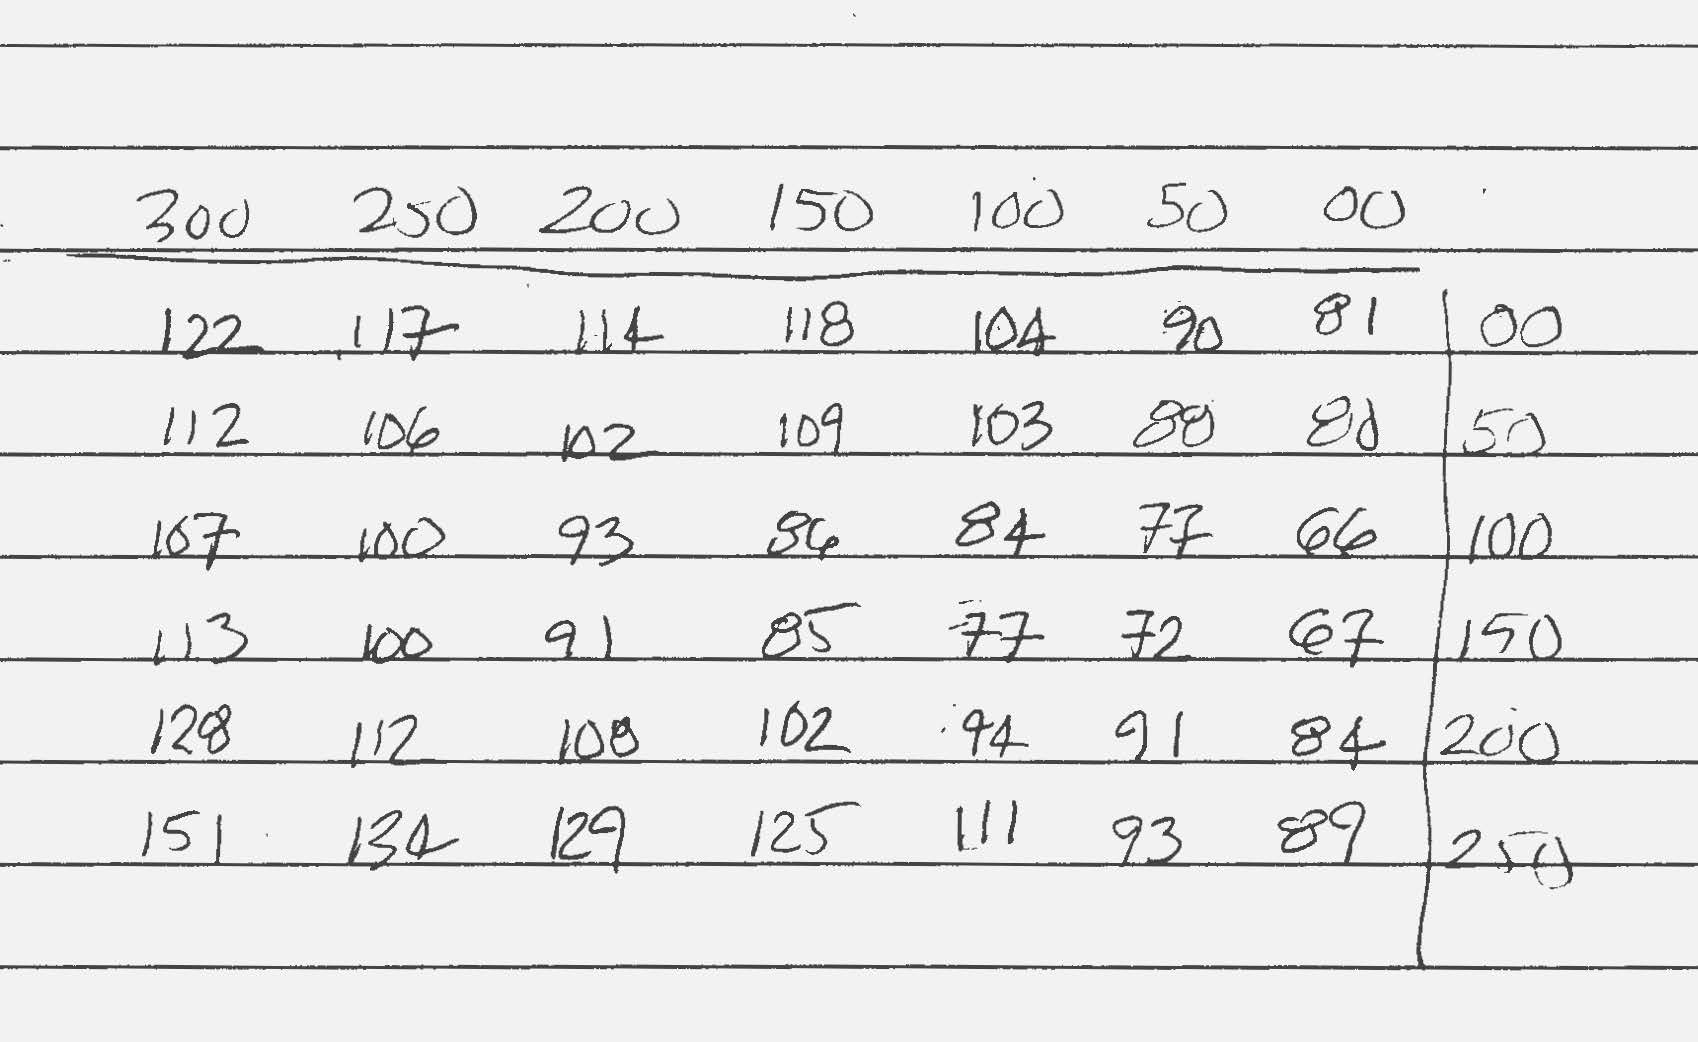 300 250 200 150 100 50 00
122 117 114 118 104 90 81 00
112 106 102 109 103 88 80 50
107 100 93 86 84 77 66 100
113 100 91 85 77 72 67 150
128 112 108 102 94 91 84 200
151 134 129 125 111 93 89 250